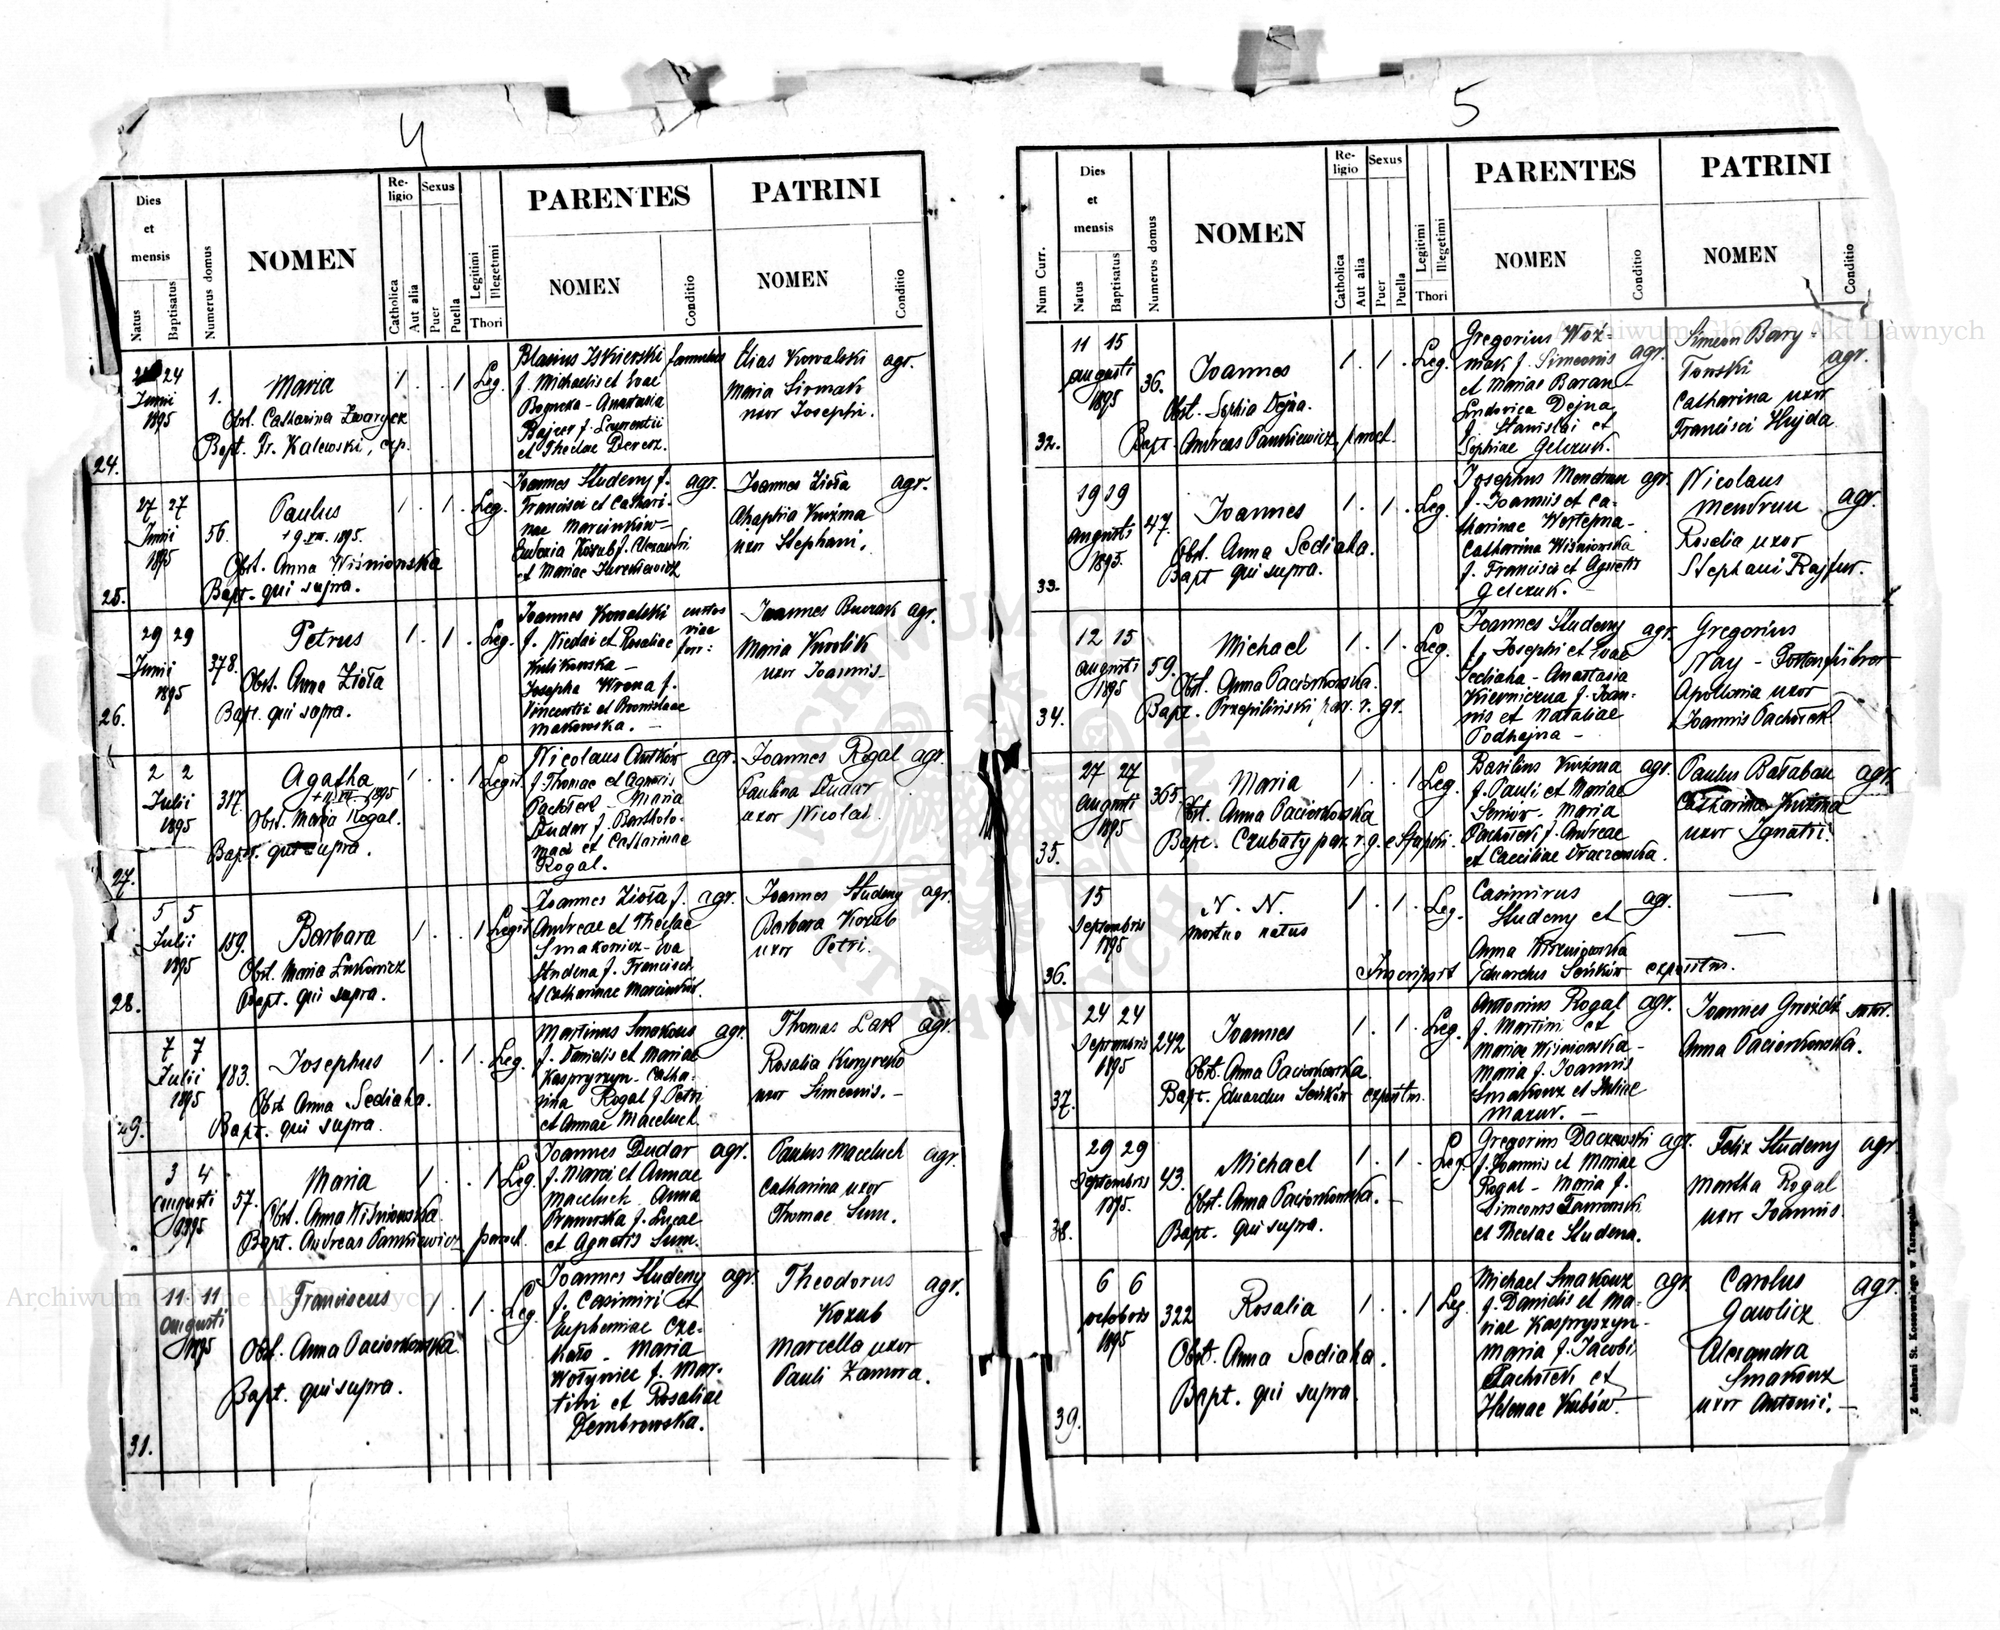 4
Dies et mensis
Natus
Baptisatus
Numerus domus
NOMEN
Religio
Catholica
Aut alia
Sexus
Puer
Puella
Legitimi
Illegetimi
Thori
PARENTES
NOMEN
Conditio
PATRINI
NOMEN
Conditio
24.
24
Junii
1895
1.
Maria
Obst. Catharina Zwarycz
Bapt. Fr. Kalewski, exp.
1 . . 1 Leg.
Blasius Iskierski famulus
f. Michaelis et Evae
Bognicka - Anastasia
Bajcer f. Laurentii
et Theclae Derecz.
Elias Kowalski agr.
Maria Sirmak
uxor Josephi.
25.
27 27
Junii
1895
56.
Paulus
+ 9 XII. 1895.
Obst. Anna Wiśniowska
Bapt. qui supra.
1 . 1 . Leg.
Joannes Studeny f. agr.
Francisci et Cathari-
nae Marcinków-
Eudoxia Kozub f. Alexandri
et Mariae Jurkiewicz
Joannes Zioła agr.
Ahaphia Kuźma
uxor Stephani.
26.
29 29
Junii
1895
378.
Petrus
Obst. Anna Zioła
Bapt. qui supra.
1 . 1 . Leg.
Joannes Kowalski custos
f. Nicolai et Rosaliae viae
Kulikowska - ferr:
Josepha Wrona f.
Vincentii et Bronislaae
Makowska. -
Joannes Burak agr.
Maria Krolik
uxor Joannis -
27.
2 2
Julii
1895
317.
Agatha
Obst. Maria Rogal.
Bapt. qui supra.
1 . . 1 Legit.
Nicolaus Antków agr.
f. Thomae et Agnetis
Pachołek - Maria
Dudar f. Bartholo-
maei et Catharinae
Rogal.
Joannes Rogal agr.
Paulina Dudar
uxor Nicolai.
28.
5 5
Julii
1895
159.
Barbara
Obst. Maria Łukowicz
Bapt. qui supra.
1 . . 1 Legit
Joannes Zioła f. agr.
Andreae et Theclae
Smakowicz - Eva
Studena f. Francisci
et Catharinae Marcinków.
Joannes Studeny agr.
Barbara Kozub
uxor Petri.
29.
7 7
Julii
1895
183.
Josephus
Obst Anna Sediaha.
Bapt. qui supra.
1 . 1 . Leg.
Martinus Smakouz agr.
f. Danielis et Mariae
Kaspryszyn - Catha-
rina Rogal f. Petri
et Annae Maceluch.
Thomas Lak agr.
Rosalia
uxor Simeonis. -
3 4
augusti
1895
57.
Maria
Obst. Anna Wiśniowska
Bapt. Andreas Pankiewicz paroch.
1 . . 1 Leg.
Joannes Dudar agr.
f. Marci et Annae
Maceluch Anna
f. Lucae
et Agnetis Sum.
Paulus Maceluch agr.
Catharina uxor
Thomae Sum.
31.
11 11
augusti
1895
Franciscus
Obst. Anna Paciorkowska
Bapt. qui supra.
1 . 1 . Leg.
Joannes Studeny agr.
f. Casimiri et
Euphemiae Cze-
kało - Maria
Wołyniec f. Mar-
tini et Rosaliae
Dembrowska.
Theodorus agr.
Kozub
Marcella uxor
Pauli Zamora.
5
Num Curr.
Dies et mensis
Natus
Baptisatus
Numerus domus
NOMEN
Religio
Catholica
Aut alia
Sexus
Puer
Puella
Legitimi
Illegetimi
Thori
PARENTES
NOMEN
Conditio
PATRINI
NOMEN
Conditio
32.
11 15
augusti
1895
36.
Joannes
Obst. Sophia Dejna.
Bapt. Andreas Pankiewicz, paroch.
1 . 1 . Leg.
Gregorius Woź-
niak f. Simeonis agr.
et Mariae Baran -
Ludovica Dejna
f. Stanislai et
Sophiae Gelczuk.
Simeon Bary-
Tonski agr.
Catharina uxor
Francisci Hujda.
33.
19 19
augusti
1895.
47.
Joannes
Obst. Anna Sediaha.
Bapt qui supra.
1 . 1 . Leg.
Josephus Mendrun agr.
f. Joannis et Ca-
tharinae Westepna -
Catharina Wiśniowska
f. Francisci et Agnetis
Gelczuk. -
Nicolaus
Mendrun agr.
Rosalia uxor
Stephani Rajfur.
34.
12 15
augusti
1895
59.
Michael
Obst. Anna Paciorkowska.
Bapt. Przepiliński par. r. gr.
1 . 1 . Leg.
Joannes Studeny agr.
f. Josephi et Evae
Sediaha - Anastasia
Kierniczna f. Joan-
nis et Nataliae
Podhajna -
Gregorius
Nay -
Apollonia uxor
Joannis Pachołek
35.
27 27
augusti
1895
365
Maria
Obst. Anna Paciorkowska
Bapt. Czubaty par r. g. e
1 . . 1 Leg.
Basilius Kuźma agr.
f. Pauli et Mariae
Senior. Maria
Pachołek f. Andreae
et Caeciliae Draczewska.
Paulus Bałaban agr.
Catharina Kuźma
uxor Ignatii.
36.
15
Septembris
1895
N. N.
mortuo natus
1 . 1 . Leg.
Casimirus agr.
Studeny et
Anna
Inscripsit Eduardus Seńków expositus.
37.
24 24
Septembris
1895
242
Joannes
Obst. Anna Paciorkowska.
Bapt. Eduardus Seńków expositus.
1 . 1 . Leg.
Antonius Rogal agr.
f. Martini et
Mariae Wiśniowska -
Maria f. Joannis
Smakouz et Juliae
Mazur. -
Joannes Gwoźdź sutor.
Anna Paciorkowska.
38.
29 29
Septembris
1895.
43.
Michael
Obst. Anna Paciorkowska. -
Bapt. qui supra.
1 . 1 . Leg.
Gregorius Daczewski agr.
f. Joannis et Mariae
Rogal - Maria f.
Simeonis Tarnowski
et Theclae Studena.
Felix Studeny agr
Martha Rogal
uxor Joannis.
39.
6 6
octobris
1895
322
Rosalia
Obst. Anna Sediaha.
Bapt. qui supra
1 . . 1 Leg.
Michael Smakouz agr.
f. Danielis et Ma-
riae Kaspryszyn -
Maria f. Jacobi
Pachołek et
Helenae Kubów.
Carolus agr.
Gawlicz
Alexandra
Smakouz
uxor Antonii. -
Z drukarni St. Kossowskiego w Tarnopolu
Archiwum Główne Akt Dawnych
Archiwum Główne Akt Dawnych